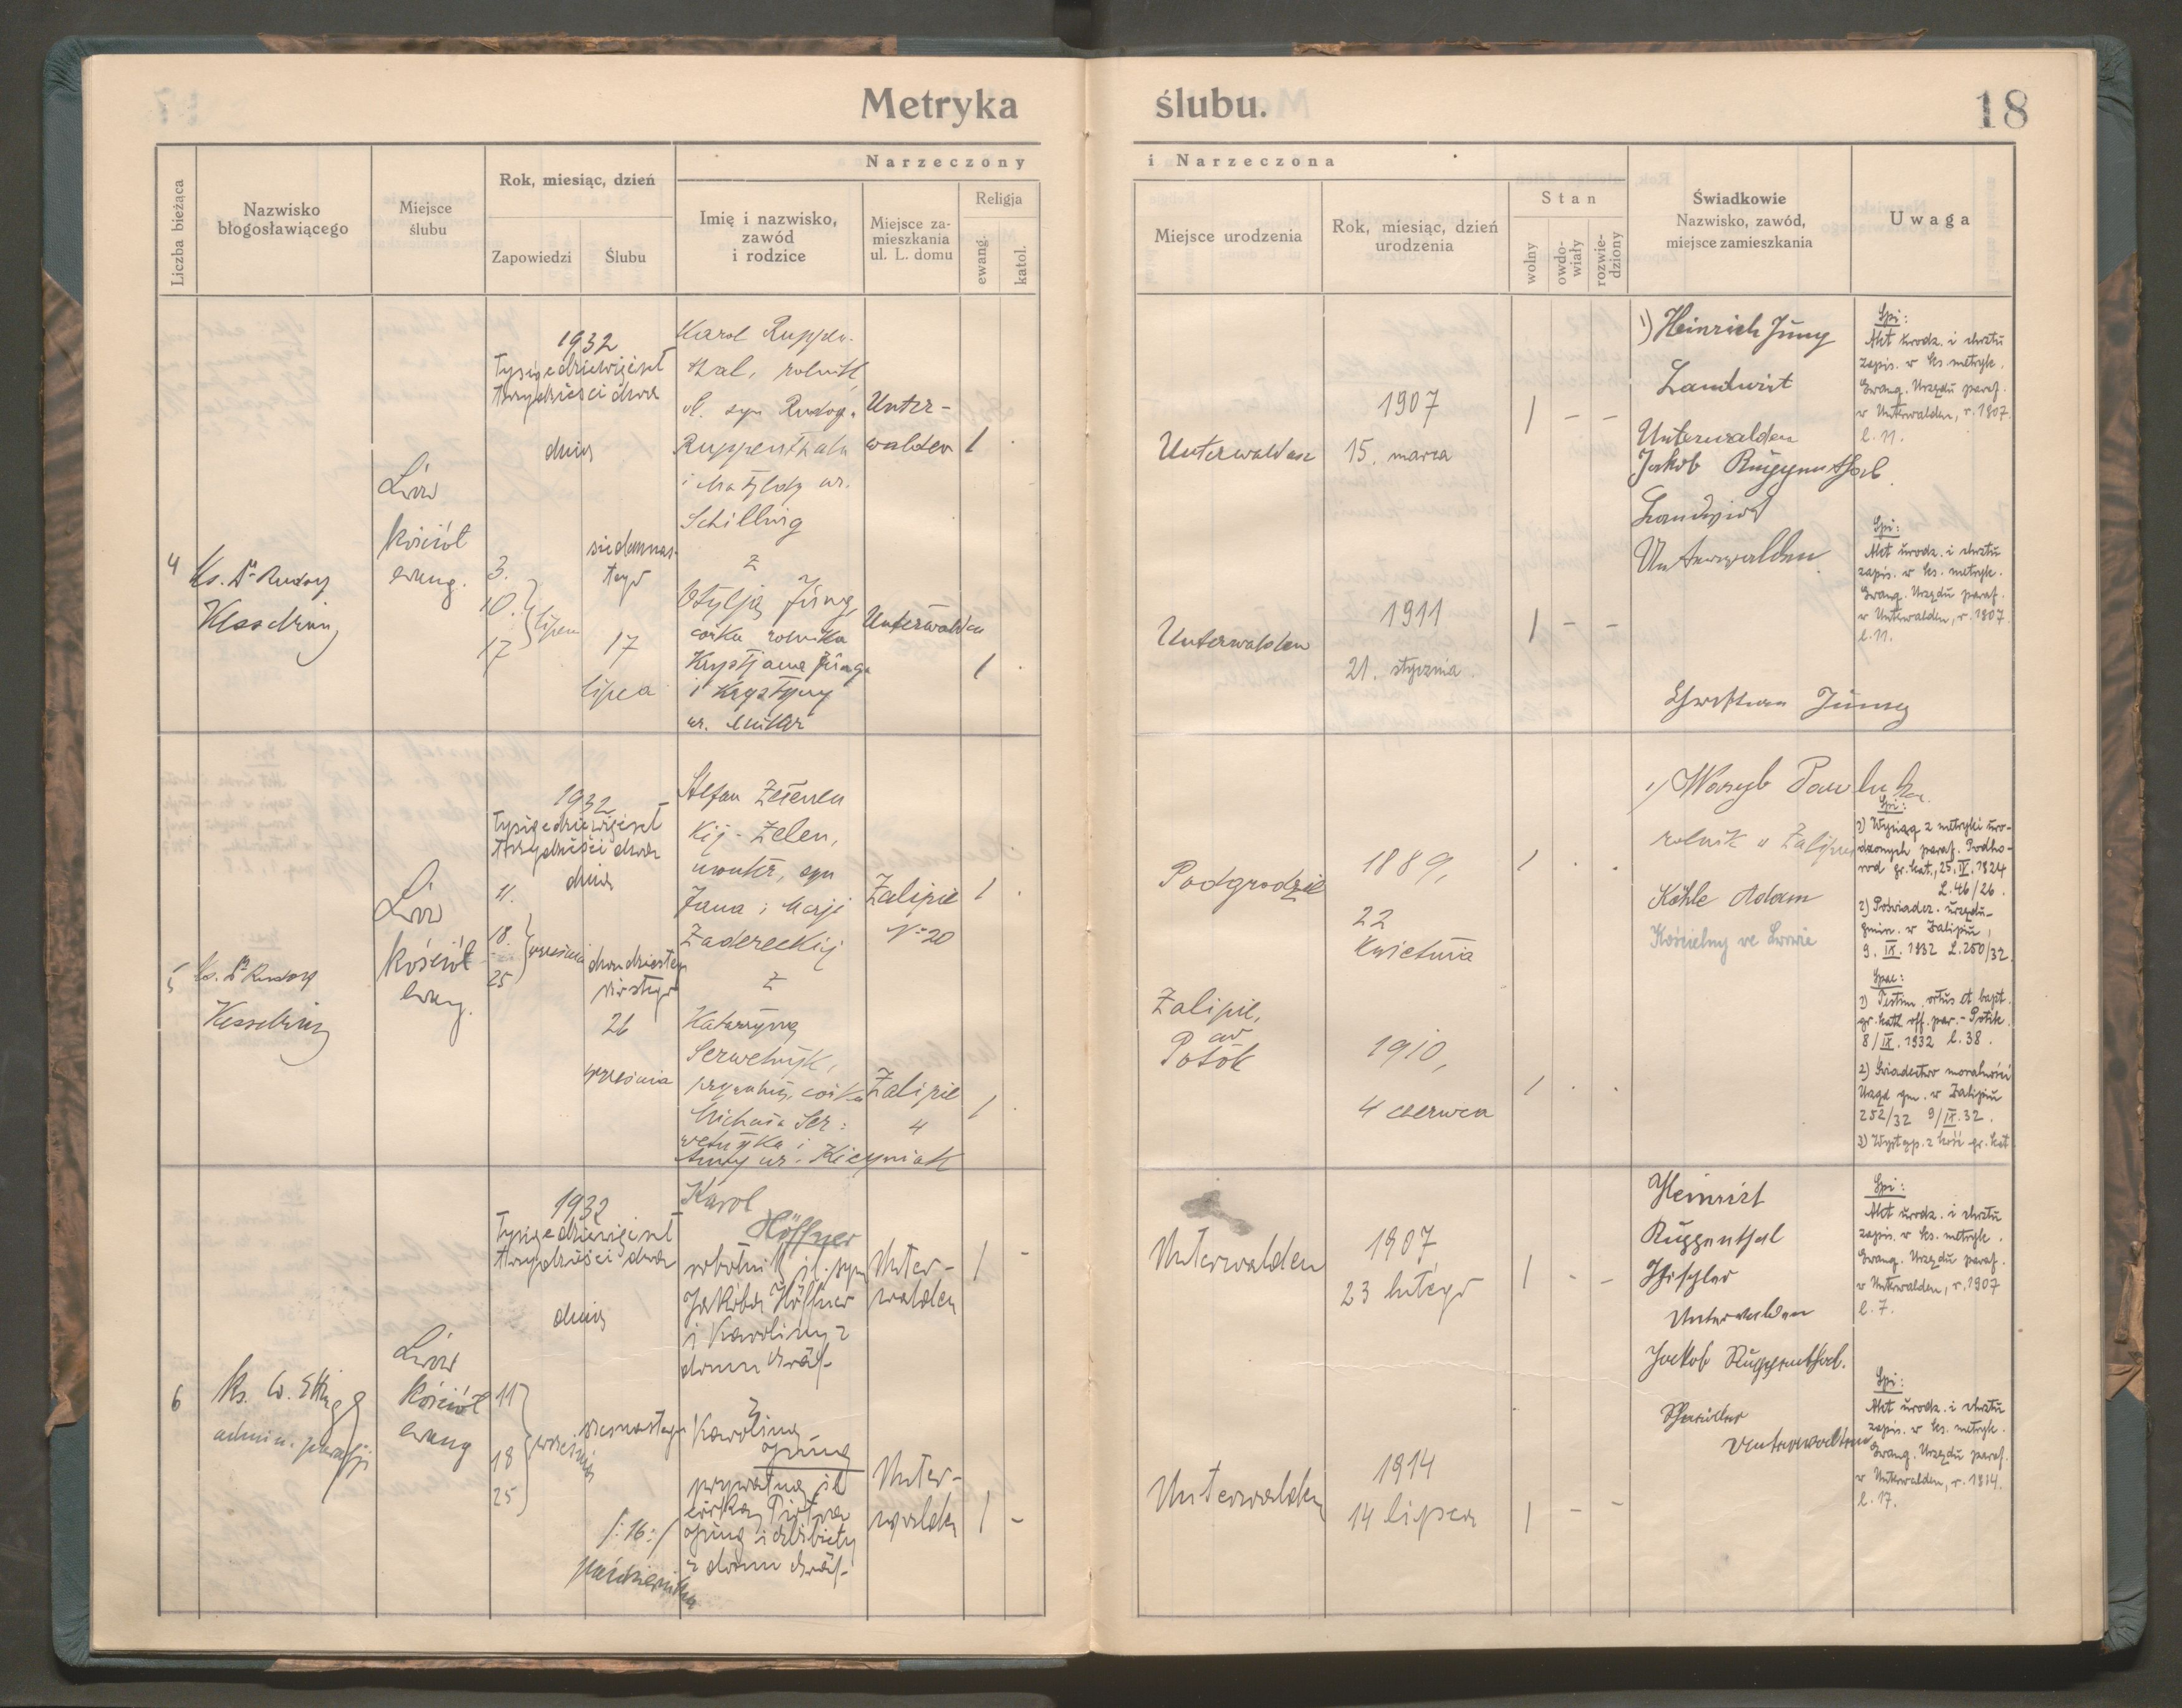 Metryka ślubu.
18
Liczba bieżąca
Nazwisko
błogosławiącego
Miejsce
ślubu
Rok, miesiąc, dzień
Zapowiedzi
Ślubu
Narzeczony
Imię i nazwisko,
zawód
i rodzice
Miejsce za-
mieszkania
ul. L. domu
Religja
ewang.
katol.
i Narzeczona
Miejsce urodzenia
Rok, miesiąc, dzień
urodzenia
Stan
wolny
owdo-
wiały
rozwie-
dziony
Świadkowie
Nazwisko, zawód,
miejsce zamieszkania
Uwaga
4
Ks. Dr Rudolf
Kesselring
Lwów
kościół
ewang.
1932
tysiąc dziewięćset
trzydzieści dwa
dnia
3.
10.
17
lipca
siedemnas-
tego
17
lipca
Karol Ruppen-
thal, rolnik
syn
Ruppenthala
i Matyldy ur.
Schilling
z
Otylją Jüng
córka rolnika
Krystjana Jünga
i Krystyny
ur.
Unter-
walden
1
Unterwalden
1
Unterwalden
1907
15. marca
1 - -
Unterwalden
1911
21. stycznia
1 - -
1) Heinrich Jüng
Landwirt
Unterwalden
Jakob Rüppenthal
Landwirt
Unterwalden
Christian Jüng
Spi:
Akt urodz. i chrztu
zapis. w ks. metryk.
Ewang. Urzędu paraf.
w Unterwalden, r. 1907
l. 11.
Spi:
Akt urodz. i chrztu
zapis. w ks. metryk.
Ewang. Urzędu paraf.
w Unterwalden, r. 1907
l. 11.
5
Ks. Dr Rudolf
Kesselring
Lwów
kościół
ewang.
1932
tysiąc dziewięćset
trzydzieści dwa
dnia
11.
18.
25
września
dwudziestego
szóstego
26
września
Stefan
syn
Jana i Marji
Zadereckij
z
Katarzyną
Serwetnyk,
prywatna, córka
Michała Ser-
wetnyka i
Anny ur. Kicyniak
Zalipie
No 20
1
Zalipie
4
1
Podgrodzie
1889,
22
kwietnia
1 . .
Zalipie,
Potok
1910,
4 czerwca
1 . .
1) Wasyl
rolnik w Zalipiu
Köhle Adam
Kościelny we Lwowie
Spi:
1) Wyciąg z metryki uro-
dzonych paraf. Podho-
rod gr. kat., 25. IV. 1924
L. 46/26.
2) Poświadcz. urzędu
gmin. w Zalipiu,
9. IX. 1932 L. 250/32.
Spae:
1) Testim. ortus et bapt.
gr. kath. off. par. - Potik
8/IX. 1932 l. 38.
2) Świadectwo moralności
Urząd gm. w Zalipiu
252/32 9/IX. 32.
3) Wystąp. z kość. gr. kat
6
Ks. W. Ettinger
admin. parafji
Lwów
kościół
ewang
1932
tysiąc dziewięćset
trzydzieści dwa
dnia
11
18
25
września
szesnastego
/:16:/
października
Karol
Höffner
robotnik syn
Jakóba Höffner
i Karoliny z
domu
z
Karoliną
Jüng
prywatna
córka Piotra
Jüng i Elżbiety
z domu
Unter-
walden
1 -
Unter-
walden
1 -
Unterwalden
1907
23 lutego
1 - -
Unterwalden
1914
14 lipca
1 - -
Heinrich
Rüppenthal
Tischler
Unterwalden
Jakob Rüppenthal.
Unterwalden
Spi:
Akt urodz. i chrztu
zapis. w ks. metryk.
Ewang. Urzędu paraf.
w Unterwalden, r. 1907
l. 7.
Spi:
Akt urodz. i chrztu
zapis. w ks. metryk.
Ewang. Urzędu paraf.
w Unterwalden, r. 1914.
l. 17.